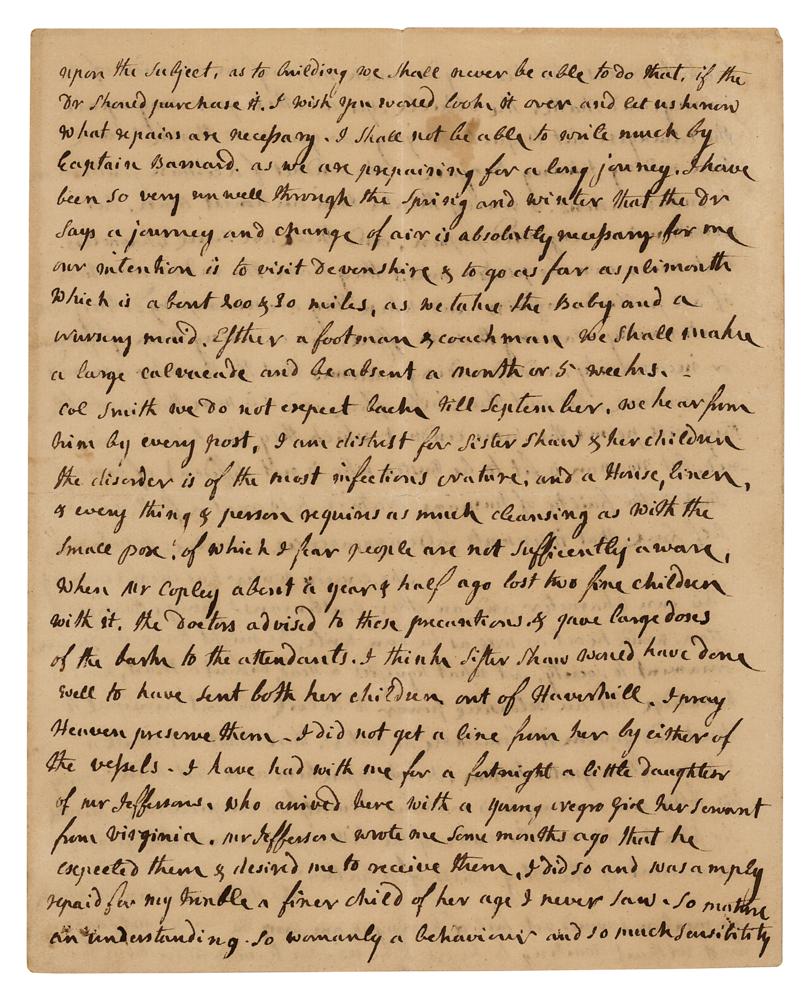 upon the subject, as to building we shall never be able to do that, if the
Dr Should purchase it. I wish you would look it over and let us know
what repairs are necessary. I shall not be able to write much by
Captain Barnard. as we are prepairing for a long journey. I have
been so very unwell through the Spring and winter that the Dr
Says a journey and change of air is absolutly necessary for me
our intention is to visit Devonshire & to go as far as plimouth
which is about 200 & 30 miles, as we take the Baby and a
nursery maid. Esther a footman & coachman we shall make
a large calvacade and be absent a month or 5 weeks. -
Col Smith we do not expect back till September. we hear from
him by every post, I am distrest for Sister Shaw & her children
the disorder is of the most infectious nature, and a House, linen,
& every thing & person requires as much cleansing as with the
Small pox, of which I fear people are not sufficently aware,
when Mr Copley about a year & half ago lost two fine children
with it. the Doctors advised to these precautions & gave large doses
of the bark to the attendants. I think Sister Shaw would have done
well to have sent both her children out of Haverhill. I pray
Heaven preserve them - I did not get a line from her by either of
the vessels - I have had with me for a fortnight a little daughter
of mr Jeffersons, who arrived here with a young Negro Girl her Servant
from virginia. mr Jefferson wrote me some months ago that he
expected them & desired me to receive them, I did so and was amply
repaid for my trouble a finer child of her age I never saw. So mature
an understanding. So womanly a behaviour and so much sensibility